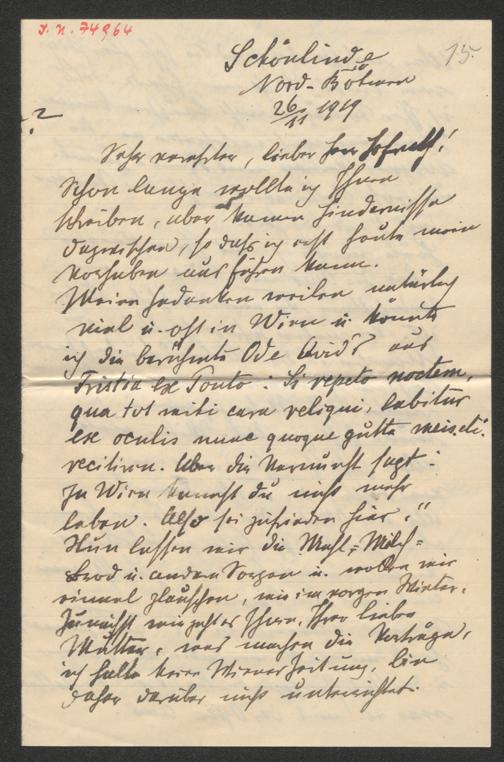 J. N. 74964
15.
Schönlinde
Nord-Böhmen
26/11 1919
?
Sehr verehrter, lieber Herr Hofrath!
Schon lange wollte ich Ihnen
schreiben, aber kamen Hindernisse
dazwischen, so daß ich erst heute mein
Vorhaben ausführen kann.
Meine Gedanken weilen natürlich
viel u. oft in Wien u. könnte
ich die berühmte Ode Ovid's aus
Tristia ex Ponto: Si repeto noctem,
qua tot mihi cara reliqui, labitur
ex oculis nunc quoque gutta meis etc.
recitiren. Aber die Vernunft sagt:
In Wien kannst du nicht mehr
leben. Also sei zufrieden hier."
Nun lassen wir die Mehl-, Milch-
Brod u. andere Sorgen u. wollen wir
einmal plauschen, wie im vorigen Winter.
Zunächst wie geht es Ihnen, Ihrer lieben
Mutter, was machen die Vorträge,
ich halte keine Wiener Zeitung, bin
daher darüber nicht unterrichtet.